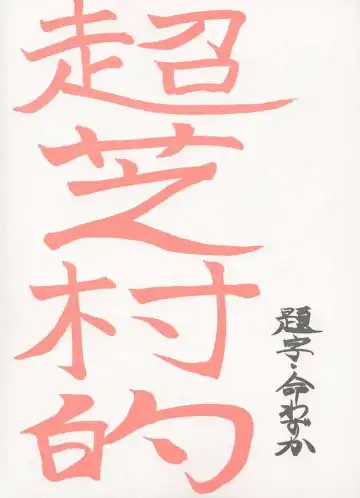 超芝村的
題字・命わずか